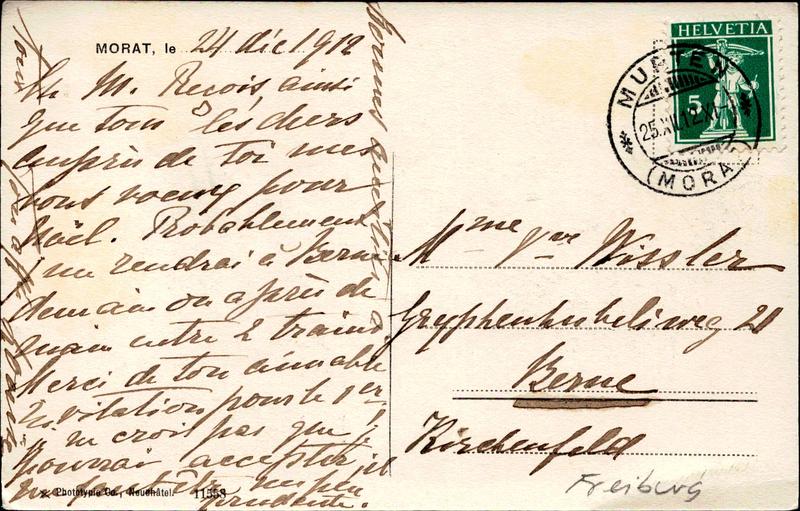 MORAT, le 24 dic 1912
Ch. M. Reçois ainsi
que tous les chers
auprès de toi mes
bons voeux pour
Noël. Probablement
me rendrai à Berne
demain ou après de
main entre 2 trains
Merci de ton aimable
invitation pour le 1er
je ne crois pas que j
pourrai accepter, il
me faut être un peu
prudente.
Phototypie Co., Neuchâtel. 11558
HELVETIA
5
MURTEN
25.XII.12.XI
(MORAT)
Mme Vve Wissler
Gryphenhubeliweg 21
Berne
Kirchenfeld
Freiburg